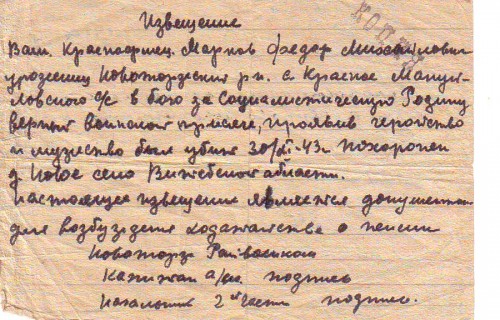 Извещение
копия
Ваш. Красноармеец. Марков Федор Михайлович
уроженец Новоторжский р-н. с Красное
с/с в бою за Социалистическую Родину
верный воинской присяге, проявив геройство
и мужество был убит 30/XI-43г. похоронен
д. Новое село Витебской области.
настоящее извещение является документом
для возбуждения ходатайства о пенсии
Новоторж Райвоенком
Капитан а/сл. подпись
Начальник 2ой части подпись.